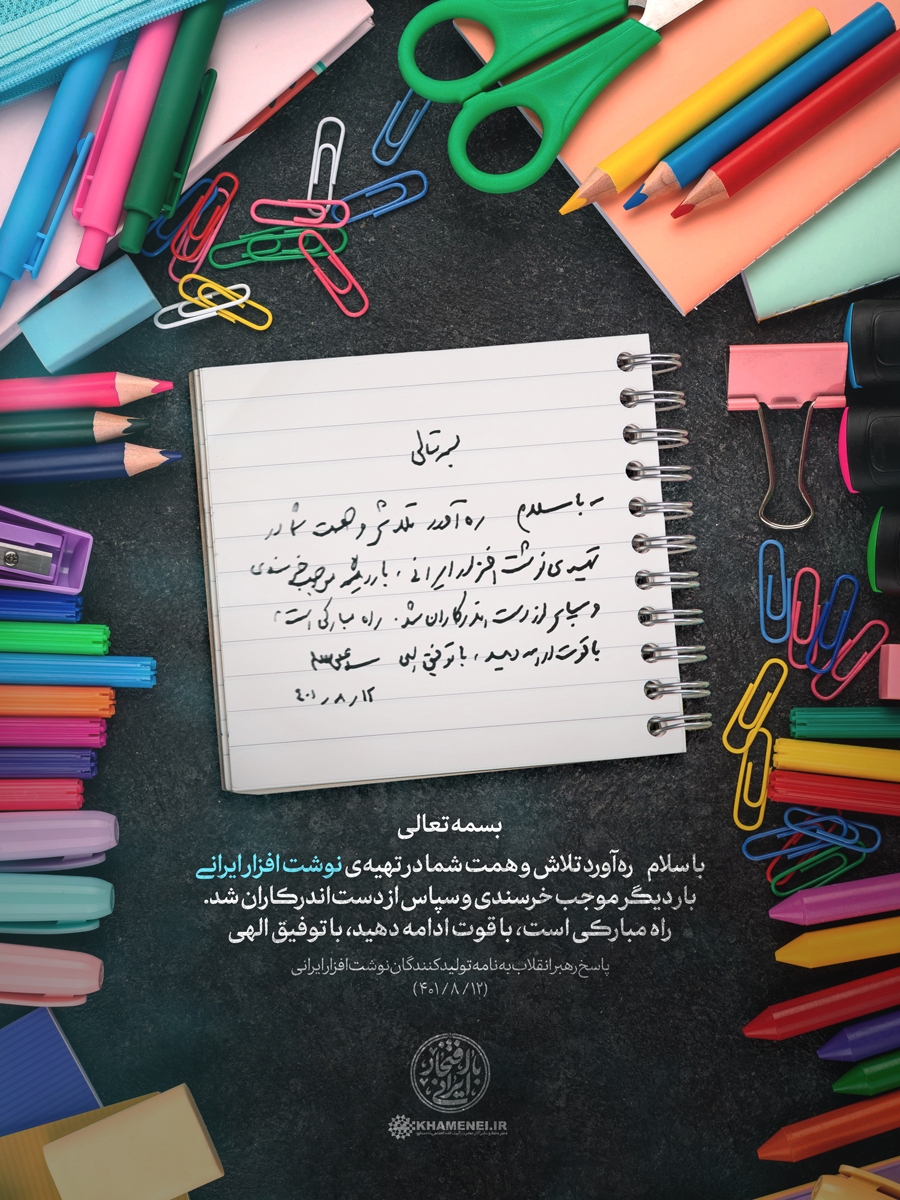 بسمه تعالی
با سلام ره آورد تلاش و همت شما در
تهیه‌ی نوشت افزار ایرانی، بار دیگر موجب خرسندی
و سپاس از دست اندرکاران شد. راه مبارکی است،
با قوت ادامه دهید، با توفیق الهی سیدعلی خامنه‌ای
۴۰۱٫۸٫۱۲
بسمه تعالی
با سلام ره‌آورد تلاش و همت شما در تهیه‌ی نوشت افزار ایرانی
بار دیگر موجب خرسندی و سپاس از دست‌اندرکاران شد.
راه مبارکی است، با قوت ادامه دهید، با توفیق الهی
پاسخ رهبر انقلاب به نامه تولیدکنندگان نوشت افزار ایرانی
(۴۰۱/۸/۱۲)
با افتخار ایرانی
KHAMENEI.IR